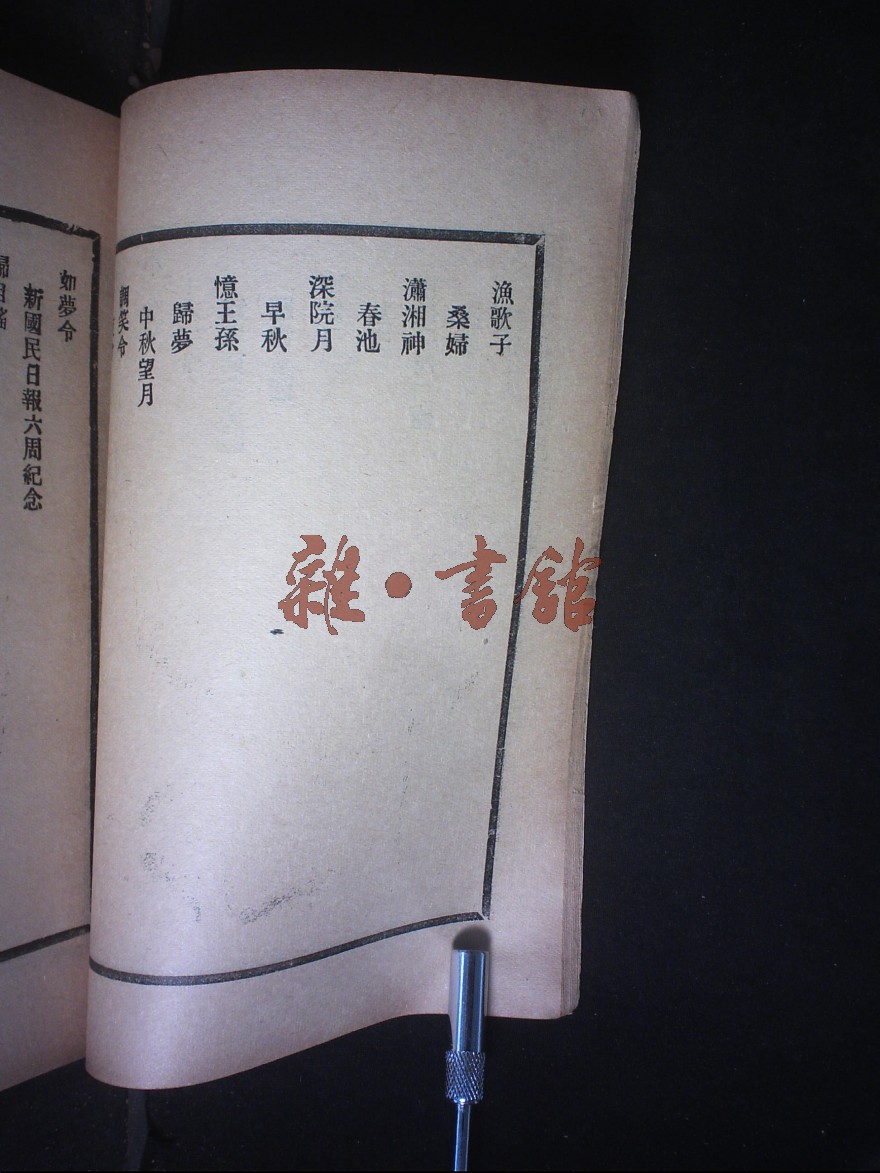 漁歌子
桑婦
瀟湘神
春池
深院月
早秋
憶王孫
歸夢
中秋望月
調笑令
如夢令
新國民日報六周紀念
雜·書館